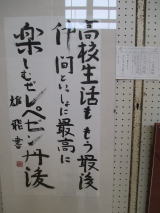 高校生活ももう最後
仲間といっしょに最高に
楽しむぜレペゼン丹後
雄飛書